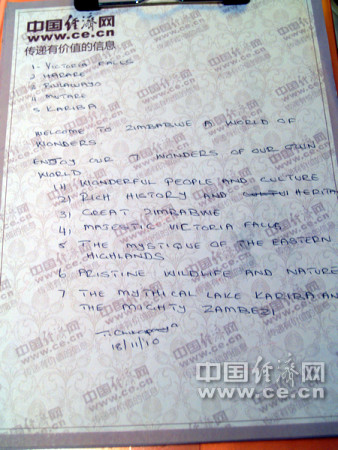 中国经济网
www.ce.cn
传递有价值的信息
1- VICTORIA FALLS
2 HARARE
3 BULAWAYO
4 MUTARE
5 KARIBA
WELCOME TO ZIMBABWE A WORLD OF
WONDERS
ENJOY OUR 7 WONDERS OF OUR OWN
WORLD
1) WONDERFUL PEOPLE AND CULTURE
2) RICH HISTORY AND HERITA
3) GREAT ZIMBABWE
4) MAJESTIC VICTORIA FALLS
5 THE MYSTIQUE OF THE EASTERN
HIGHLANDS
6 PRISTINE WILDLIFE AND NATURE
7 THE MYTHICAL LAKE KARIBA AN
THE MIGHTY ZAMBEZI
18/11/10
中国经济网
www.ce.cn